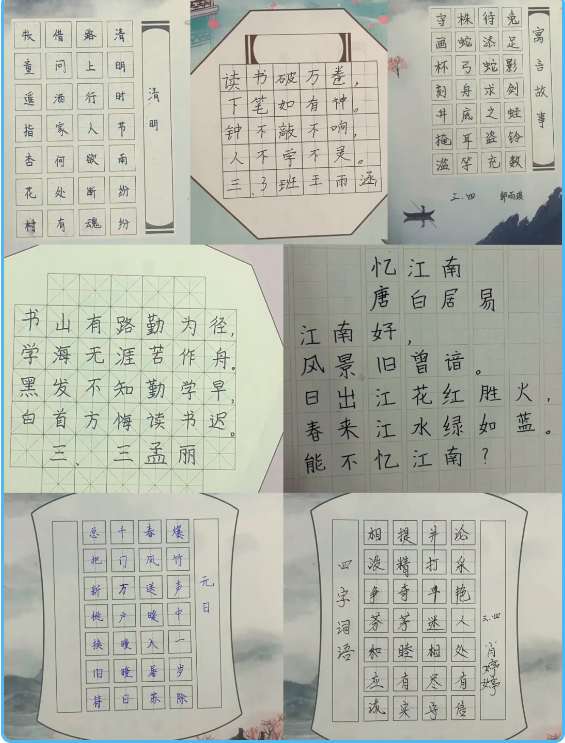 清明
清明时节雨纷纷
路上行人欲断魂
借问酒家何处有
牧童遥指杏花村
读书破万卷，
下笔如有神。
钟不敲不响，
人不学不灵。
三.3班王雨
寓言故事
守株待兔
画蛇添足
杯弓蛇影
刻舟求剑
井底之蛙
掩耳盗铃
滥竽充数
三.四
书山有路勤为径，
学海无涯苦作舟。
黑发不知勤学早，
白首方悔读书迟。
三、三孟丽
忆江南
唐白居易
江南好，
风景旧曾谙。
日出江花红胜火，
春来江水绿如蓝。
能不忆江南？
元日
爆竹声中一岁除
春风送暖入屠苏
千门万户曈曈日
总把新桃换旧符
四字词语
相提并论
没精打采
争奇斗艳
芬芳迷人
和睦相处
应有尽有
诚实守信
三.四 肖婷婷